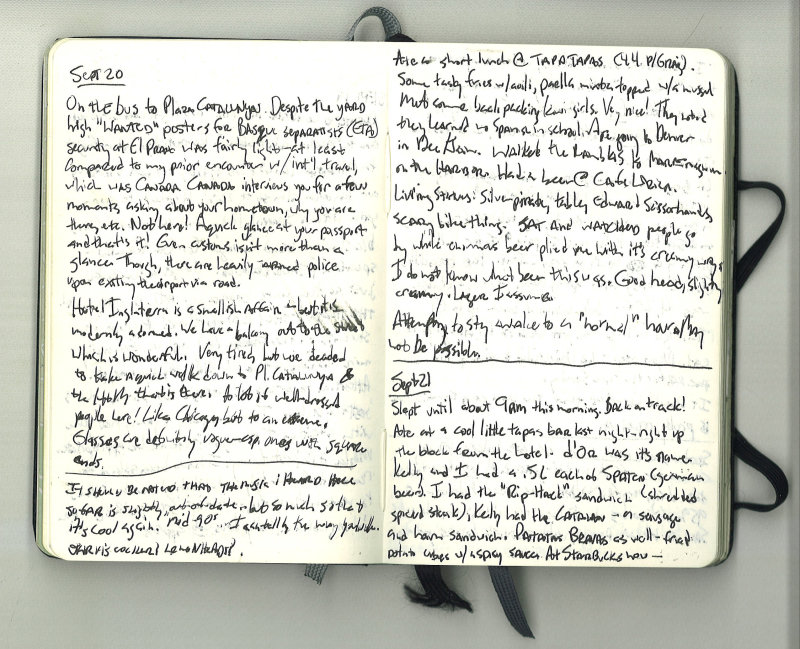 Sept 20
On the bus to Plaza CATALUNYA. Despite the yard
high "WANTED" posters for Basque separatists (ETA)
security at El Prat was fairly light - at least
compared to my prior encounter w/ int'l travel,
which was CANADA CANADA interviews you for a few
moments asking about your hometown, why you are
there, etc. Not here! A quick glance at your passport
and that's it! Even customs isn't more than a
glance. Though, there are heavily armed police
upon exiting the airport via road.
Hotel Inglaterra is a smallish affair - but it is
modernly adorned. We have a balcony out to the
which is wonderful. Very tired, but we decided
to take a quick walk down to Pl. CATALUNYA &
the that is there. A lot of well-dressed
people here! Like Chicago but to an extreme.
Glasses are definitely vogue - esp. ones with square
ends.
It should be noted that the music I HEARD HERE
so far is slightly out-of-date - but so much so that
it's cool again. mid 90s - Inastella the
JARVIS COCKER! LEMONHEADS!
Ate a short lunch @ TAPA TAPAS (44 P/Gracia).
Some tasty fries w/ aioli, paella mixta topped w/ a mussel
Met some backpacking girls. Very nice! They noted
they learned no Spanish in school. Are going to Denver
in December. Walked the RAMBLAS to
on the HARBOR. Had a beer @
Living Statues: Silver pirate, table, Edward Scissorhands,
scary bike thing. SAT AND WATCHED people go
by while beer plied me with it's creamy
I do not know what beer this was. Good head, slightly
creamy. Lager I assume.
Attempting to stay awake to a "normal" hour may
not be possible.
Sept 21
Slept until about 9am this morning. Back on track!
Ate at a cool little tapas bar last night - right up
the block from the hotel. d'Or was its name
Kelly and I had a .5L each of SPATEN (german
beer). I had the "Rip-Hack" sandwich (shredded
spiced steak), Kelly had the CATALAN - a sausage
and ham sandwich. PATATAS BRAVAS as well - fried
potato cubes w/ a spicy sauce. At STARBUCKS now -